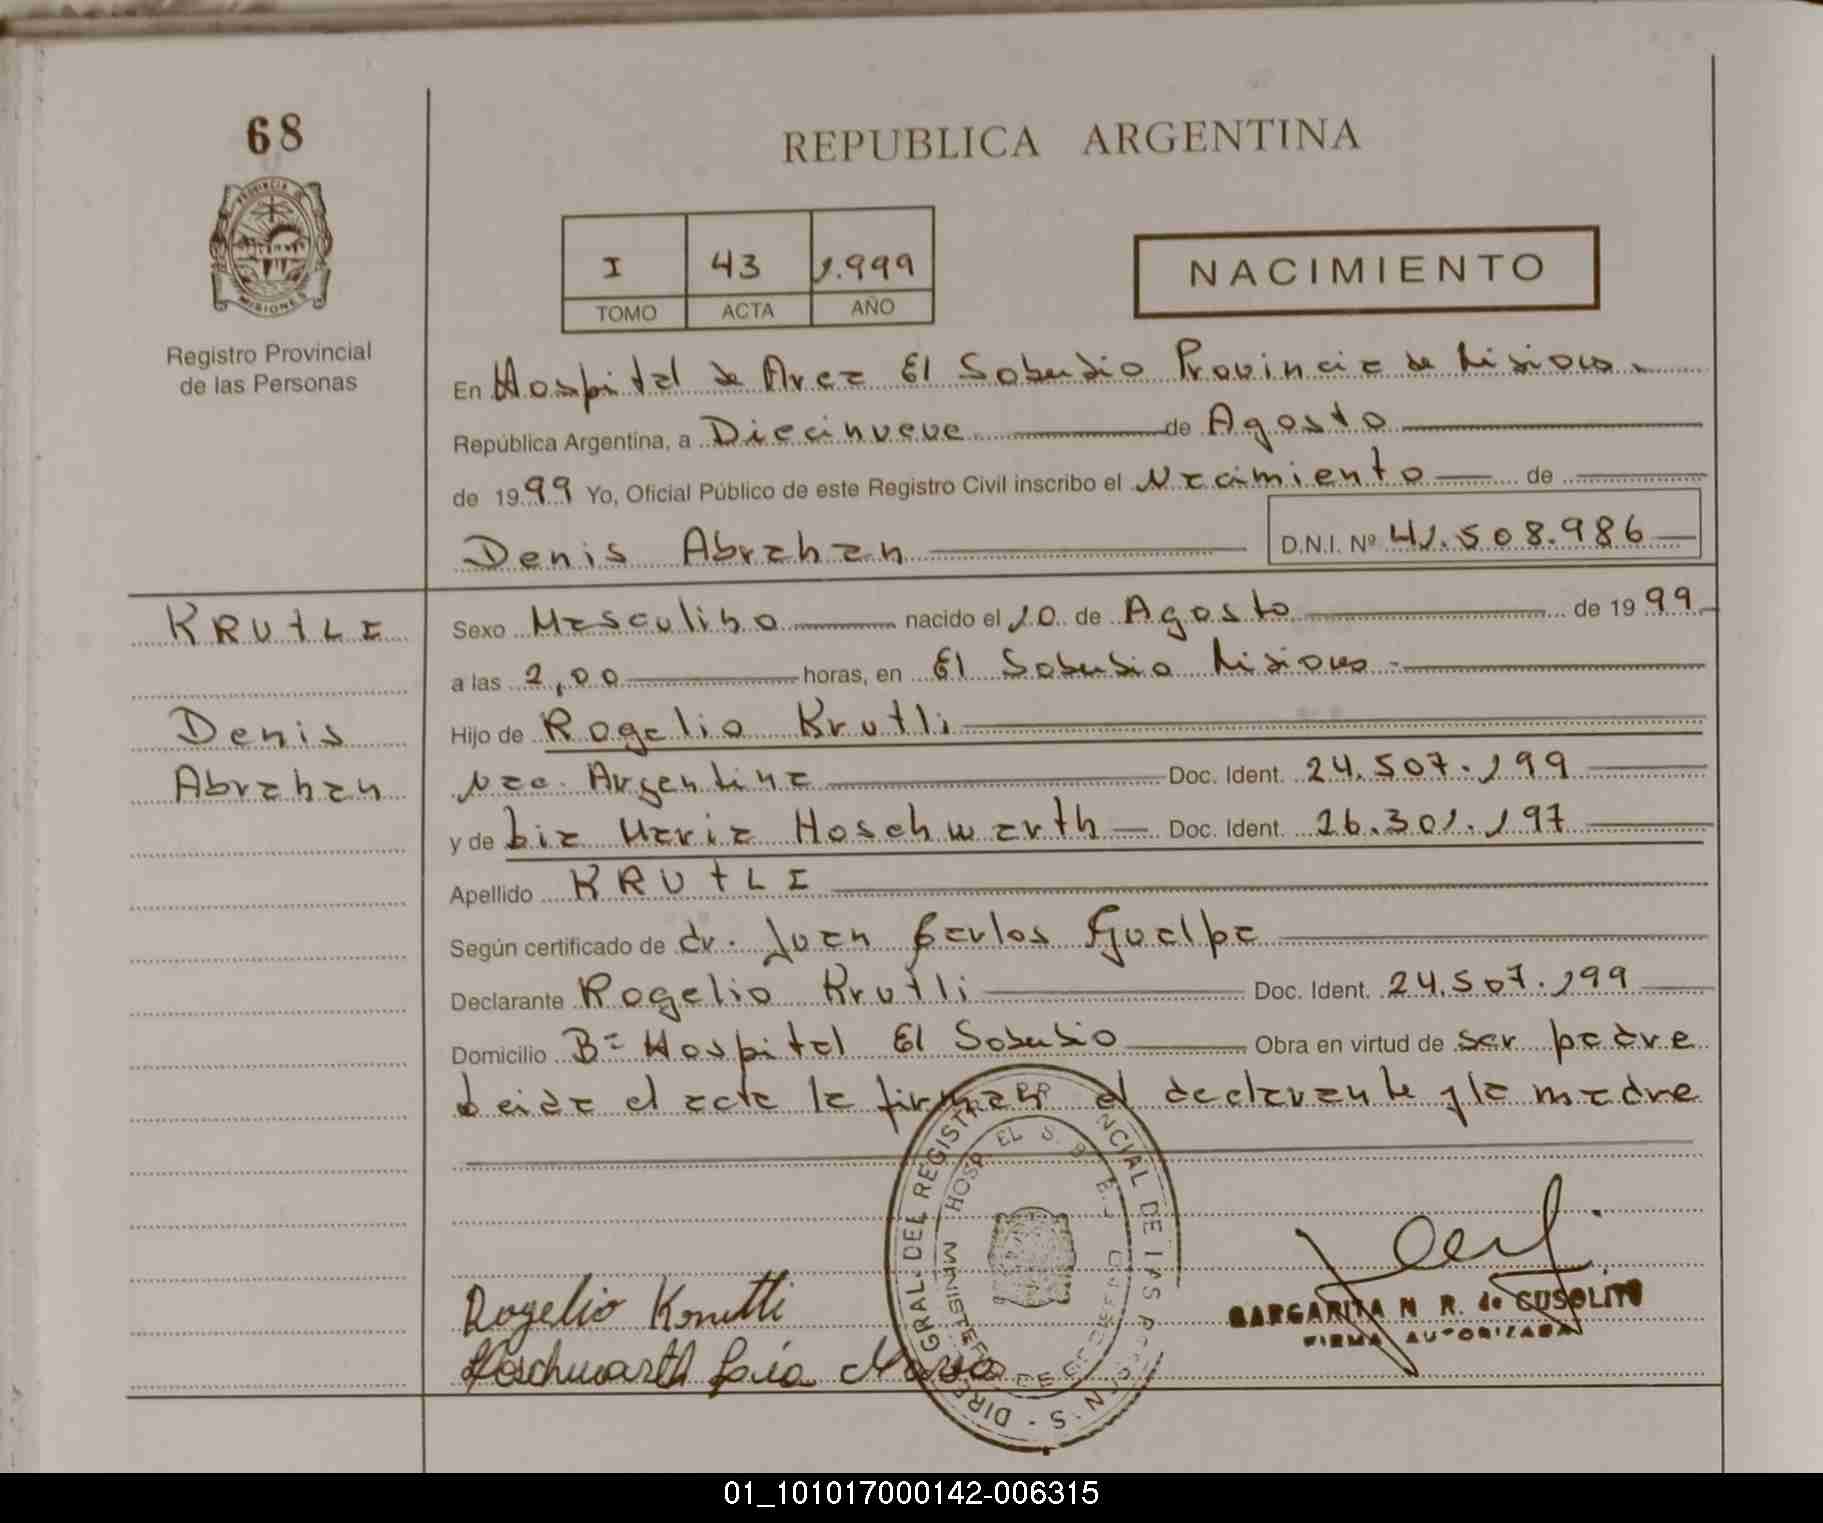 68
REPUBLICA ARGENTINA
PROVINCIA DE
MISIONES
Registro Provincial
de las Personas
I 43 1.999
TOMO ACTA AÑO
NACIMIENTO
En Hospital de Area El Soberbio Provincia de Misiones
República Argentina, a Diecinueve de Agosto
de 1999 Yo, Oficial Público de este Registro Civil inscribo el Nacimiento de
Denis Abrahan D.N.I. Nº 41.508.986
KRUtLI
Denis
Abrahan
Sexo Masculino nacido el 10 de Agosto de 1999
a las 2,00 horas, en El Soberbio Misiones
Hijo de Rogelio Krutli
Nac. Argentina Doc. Ident. 24.507.199
y de Lia Maria Hoschwarth Doc. Ident. 26.301.197
Apellido KRUtLI
Según certificado de dr. Juan Carlos Gualpa
Declarante Rogelio Krutli Doc. Ident. 24.507.199
Domicilio Bº Hospital El Soberbio Obra en virtud de ser padre
Leida el acta la firman el declarante y la madre
Rogelio Krutli
Hoschwarth Lia Maria
MARGARITA N R. de CUSOLITO
FIRMA AUTORIZADA
01_101017000142-006315